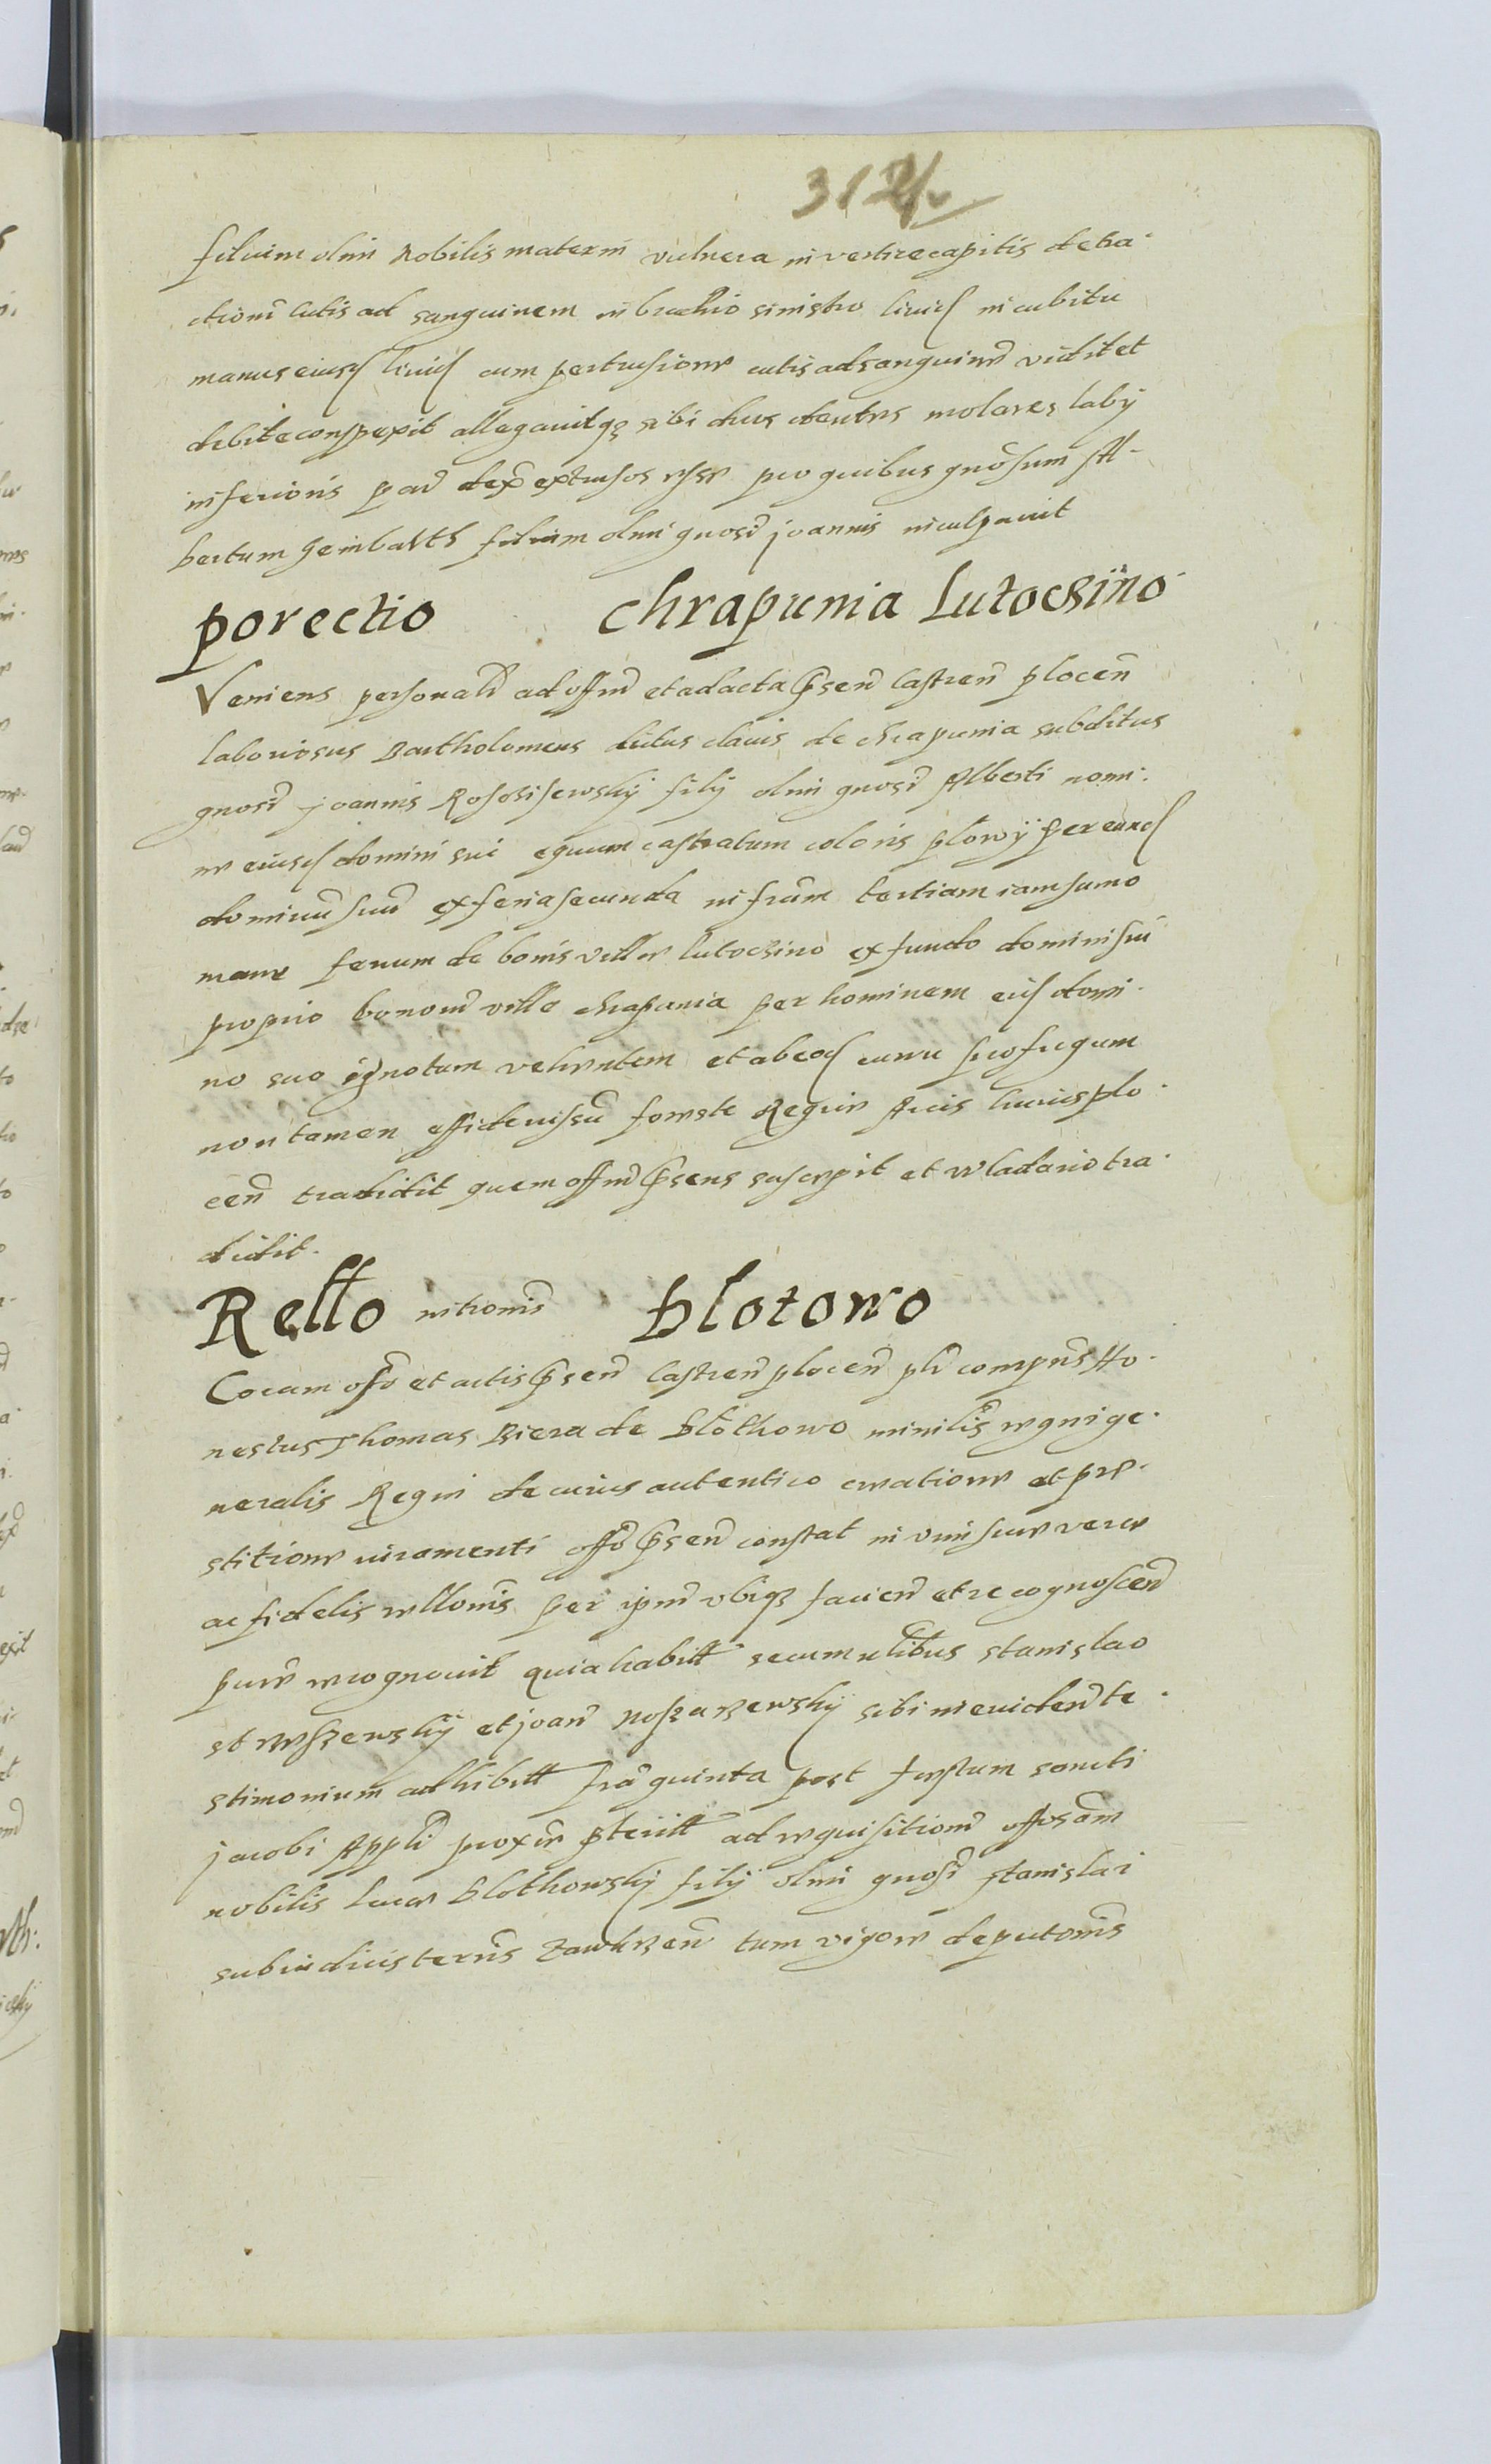 312
filium olim Nobilis materni vulnera in vertice capitis detra-
ctioni cutis ad sanguinem in brachio sinistro livid in cubitu
manus eiusd livid cum pertusione cutis ad sanguinem vidit et
debite conspexit allegavitqz sibi duos dentes molares laby
inferioris part dex extrusos esse pro quibus gnosum Al-
bertum Gembarth filium olim gnosi joannis inculpavit
porectio chrapunia Lutocsino
Veniens personalr ad offm et ad acta psen Castren plocen
laboriosus Bartholomeus dictus clavis de chrapunia subditus
gnosi joannis Rososisewsky fily olim gnosi Alberti nomi-
ne eiusd domini sui equum castratum coloris plowy per eund
dominu suu ex feria secunda in fram tertiam iam sumo
mane fenum de bonis ville lutocsino ex fundo domini sui
proprio bonom ville chrapunia per hominem eius domi-
no suo ignotum vehentem et ab eod curru profugum
non tamen effidevissu foreste Regie Arcis huius plo-
cen tradidit quem offm psens suscepit et wladario tra-
didit.
Rello intromis blotowo
Coram offo et actis psen Castren plocen plr comprns Ho-
nestus Thomas Biera de blothowo minilis regni ge-
neralis Regni de cuius autentico creatione et pre-
stitione iuramenti offo psen constat in vim sue vere
ac fidelis rellonis per ipm ubiqz facien et recognoscen
pure recognovit quia habitt secum nlibus stanislao
strzeszewsky et joan noszarzewsky sibi in eviden te-
stimonium adhibitt fra quinta post festum sancti
jacobi Appli proxie pteritt ad requisitionem offosam
nobilis luce blothowsky fily olim gnosi stanislai
subiudicis terris zawkrzen tum vigore deputonis